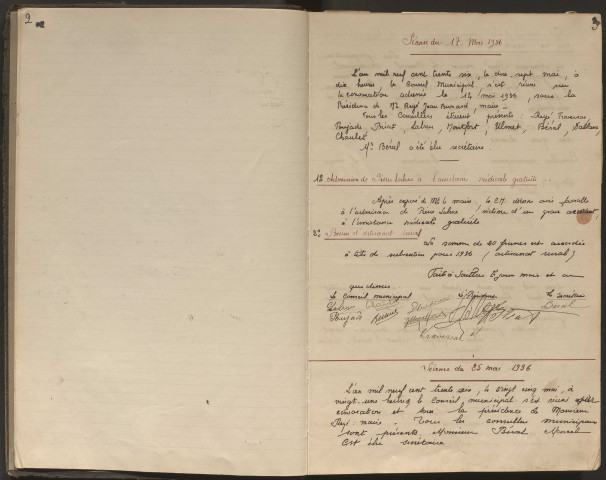 2
3
Séance du 17 Mai 1936
L'an mil neuf cent trente six, le dix sept mai, à
dix heures, le Conseil Municipal, s'est réuni sur
la convocation adressée le 14 mai 1936, sous la
Présidence de Mr Rugé Jean Durand, maire.
Tous les Conseillers étaient présents : Rugé, Traversac
Poujade, Briat, Labru, Montfort, Ulmet, Béral, Dalbeau,
Chaulet
Mr Béral a été élu secrétaire.
1º Admission de Pierre Labru à l'assistance médicale gratuite
Après exposé de Mr le maire, le C.M. donne avis favorable
à l'admission de Pierre Labru, victime d'un grave accident,
à l'assistance médicale gratuite
2º Bourse d'artisanat rural
La somme de 20 francs est accordée
à titre de subvention pour 1936 (artisanat rural)
Fait à les jour mois et an
que dessus.
Le Conseil municipal Le Le secrétaire
Labru Béral
Poujade
Traversac
Séance du 25 mai 1936
L'an mil neuf cent trente six, le vingt cinq mai, à
vingt-une heures le Conseil municipal s'est réuni après
convocation et sous la présidence de Monsieur
Rugé maire. Tous les conseillers municipaux
sont présents. Monsieur Béral Marcel
est élu secrétaire